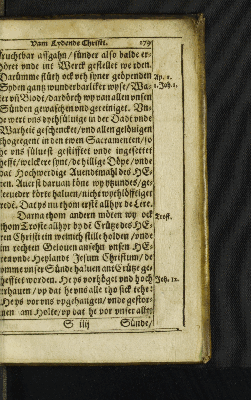 Vam Lydende Christi. 179
fruchtbar affgahn/ sünder also balde er-
höret unde int Werck gestellet werden.
Darümme flüth ock vth syner geöpenden
Syden gantz wunderbarliker wyse/ Wa- Ap. 1.
ter vñ Blodt/ dardörch wy van allen unsen 1. Joh. 1.
Sünden gewaschen vnd gereiniget. Vn-
de wert vns dythsüluige in der Dade vnde
Warheit geschencket/ vnd allen gelöuigen
thogeegent in den twen Sacramenten/ so
he vns süluest gestifftet vnde ingesettet
hefft/ welckere synt/ de hillige Döpe/ vnde
dat Hochwerdige Auendtmahl des HE-
ren. Auerst daruan köne wy ytzundes/ ge-
leeueder körte haluen/ nicht wythlöfftiger
reden. Dat ys nu thom erste allhyr de Lere.
Darna thom andern möten wy ock Trost.
thom Troste allhyr by dē Crütze des HE-
ren Christi ein weinich stille holden/ vnde
im rechten Gelouen ansehn vnsen HE-
ren vnde Heylandt Jesum Christum/ de
vmme vnser Sünde haluen ant Crütze ge-
hefftet worden. He ys vorhöget vnd hoch Jes. 52.
erhauen/ vp dat he vns alle tho sick tehe:
He ys vor vns vpgehangen/ vnde gestor-
uen am Holte/ vp dat he vor vnser aller
S iiij Sünde/